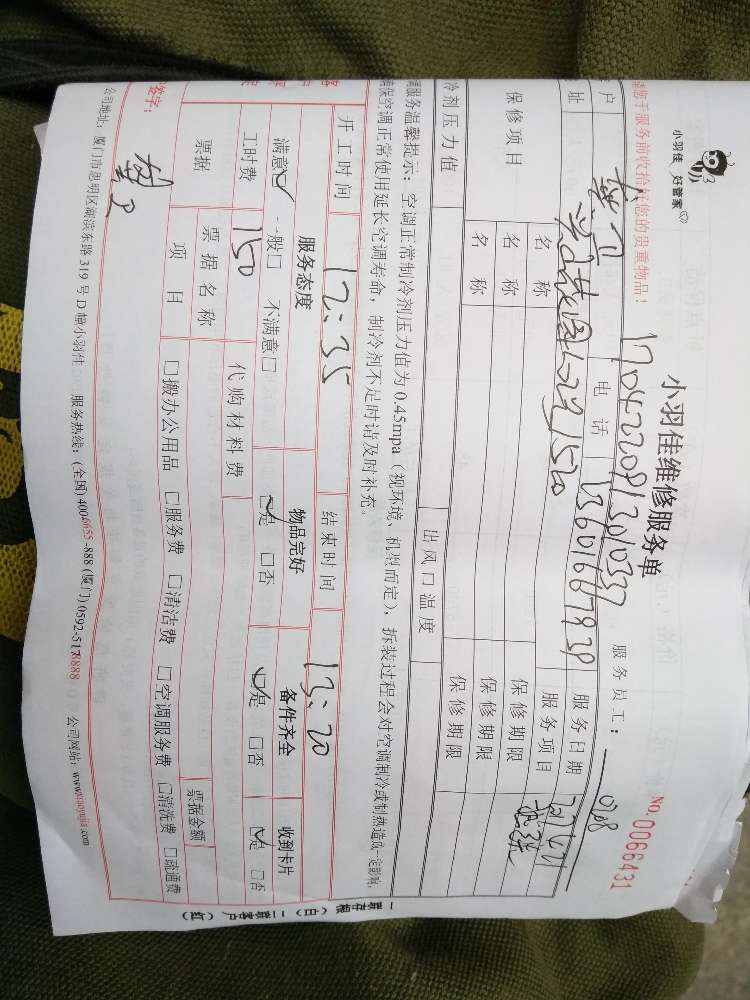 小羽佳 好管家
小羽佳维修服务单
NO.0066431
请您于服务前收拾好您的贵重物品！
服务员工：
户
电 话
13601667939
服务日期
址
服务项目
保修项目
名 称
保修期限
名 称
保修期限
名 称
保修期限
冷剂压力值
出风口温度
调服务温馨提示：空调正常制冷剂压力值为0.45mpa（视环境、机型而定），拆装过程会对空调制冷或制热造成一定影响，
确保空调正常使用延长空调寿命，制冷剂不足时请及时补充。
开工时间
12:35
结束时间
13:20
服务态度
物品完好
备件齐全
收到卡片
满意□ 一般□ 不满意□
□是 □否
□是 □否
□是 □否
工时费
150
代购材料费
票据
票据名称
票据金额
项 目
□搬办公用品 □服务费 □清洁费 □空调服务费 □清洗费 □疏通费
签字：
公司地址：厦门市思明区湖滨东路319号D幢小羽佳 服务热线：(全国)4006655-888 (厦门)0592-5178888 公司网站：www.xiaoyujia.com
一联存根（白）二联客户（红）